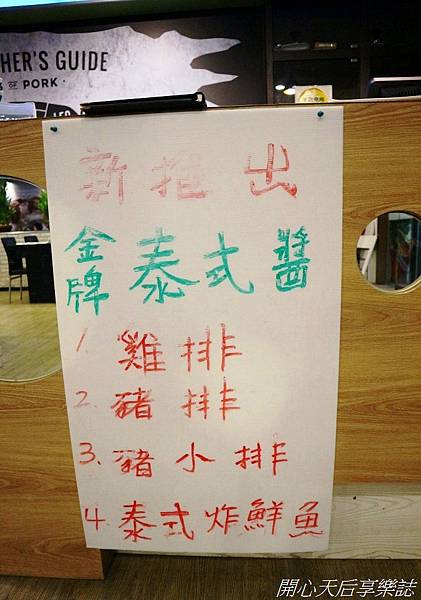 HER'S GUIDE
OF PORK
LEG
新推出
金牌泰式醬
1. 雞排
2. 豬排
3. 豬小排
4. 泰式炸鮮魚
開心天后享樂誌